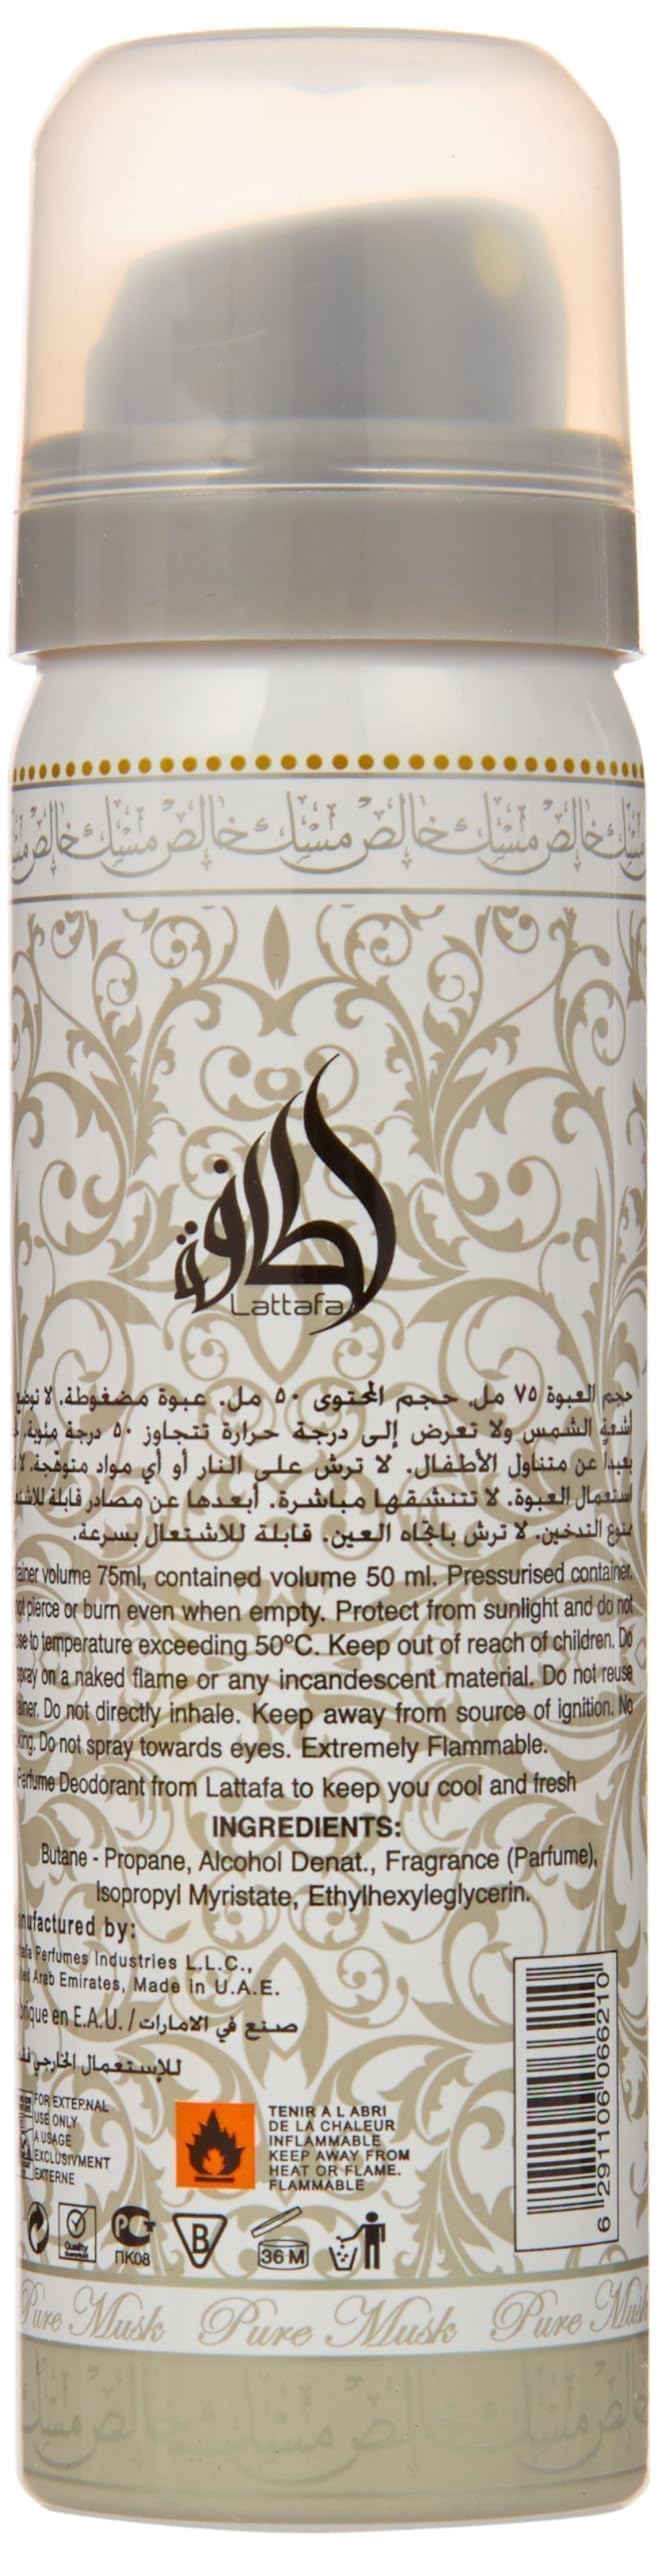 خالص مسك خالص مسك خالص مسك
لطافة
Lattafa
حجم العبوة ٧٥ مل. حجم المحتوى ٥٠ مل. عبوة مضغوطة. لا توضع
أشعة الشمس ولا تعرض إلى درجة حرارة تتجاوز ٥٠ درجة مئوية.
بعيداً عن متناول الأطفال. لا ترش على النار أو أي مواد متوهجة. لا
استعمال العبوة. لا تتنشقها مباشرة. أبعدها عن مصادر قابلة
التدخين. لا ترش باتجاه العين. قابلة للاشتعال بسرعة.
volume 75ml, contained volume 50 ml. Pressurised container.
pierce or burn even when empty. Protect from sunlight and do not
to temperature exceeding 50ºC. Keep out of reach of children. Do
spray on a naked flame or any incandescent material. Do not reuse
Do not directly inhale. Keep away from source of ignition. No
Do not spray towards eyes. Extremely Flammable.
Perfume Deodorant from Lattafa to keep you cool and fresh
INGREDIENTS:
Butane - Propane, Alcohol Denat., Fragrance (Parfume),
Isopropyl Myristate, Ethylhexyleglycerin.
by:
Perfumes Industries L.L.C.,
Arab Emirates, Made in U.A.E.
en E.A.U. / صنع في الامارات
للإستعمال الخارجي
FOR EXTERNAL
USE ONLY
A USAGE
EXCLUSIVMENT
EXTERNE
TENIR A L ABRI
DE LA CHALEUR
INFLAMMABLE
KEEP AWAY FROM
HEAT OR FLAME.
FLAMMABLE
6 291106 066210
Quality
ПК08
B
36 M
Pure Musk Pure Musk Pure Musk
خالص مسك خالص مسك